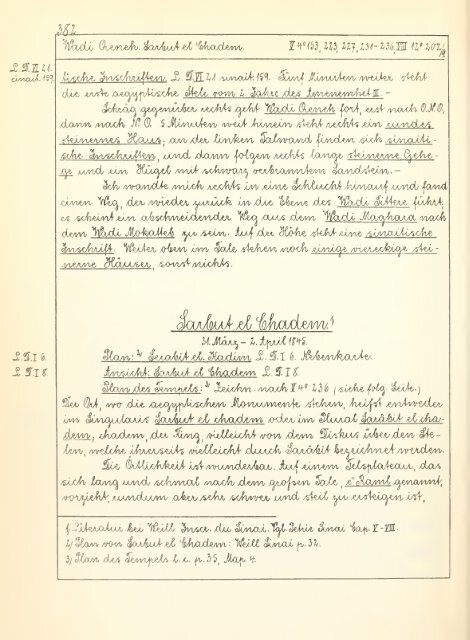 382
Wadi Qeneh. Sarbut el Chadem. V 4° 153, 223, 227, 231-236, VIII 12° 202/
L. D. VI 21. sinait. 159.
tische Inschriften. L. D. VI 21 sinait. 159. Fünf Minuten weiter steht
die erste aegyptische Stele vom 2. Jahre des Amenemhet III. –
Schräg gegenüber rechts geht Wadi Qeneh fort, erst nach O.N.O.,
dann nach N. O. 5 Minuten weit hinein steht rechts ein rundes
steinernes Haus; an der linken Talwand finden sich sinaiti-
sche Inschriften, und dann folgen rechts lange steinerne Gehe-
ge und ein Hügel mit schwarz verbranntem Sandstein. –
Ich wandte mich rechts in eine Schlucht hinauf und fand
einen Weg, der wieder zurück in die Ebene des Wadi Sittere führt;
es scheint ein abschneidender Weg aus dem Wadi Maghara nach
dem Wadi Mokatteb zu sein. Auf der Höhe steht eine sinaitische
Inschrift. Weiter oben im Tale stehen noch einige viereckige stei-
nerne Häuser, sonst nichts.
Sarbut el Chadem. 1)
31. März – 2. April 1845.
L. D. I 6.
Plan: 2) Serabit el Hadim L. D. I 6. Nebenkarte.
L. D. I 8.
Ansicht: Sarbut el Chadem L. D. I 8
Plan des Tempels: 3) Zeichn. nach V 4° 236 (siehe folg. Seite.)
Der Ort, wo die aegyptischen Monumente stehen, heifst entweder
im Singularis Sarbut el chadem oder im Plural Sarâbit el cha-
dem; chadem, der Ring, vielleicht von dem Diskus über den Ste-
len, welche ihrerseits vielleicht durch Sarâbit bezeichnet werden.
Die Örtlichkeit ist wunderbar. Auf einem Felsplateau, das
sich lang und schmal nach dem grofsen Tale, e' Ramb genannt,
vorzieht, rundum aber sehr schwer und steil zu ersteigen ist,
1) Literatur bei Weill Inscr. du Sinai. Vgl. Petrie Sinai Cap. V-VIII.
2) Plan von Sarbut el Chadem: Weill Sinai p. 32.
3) Plan des Tempels l. c. p. 35, Map 4.